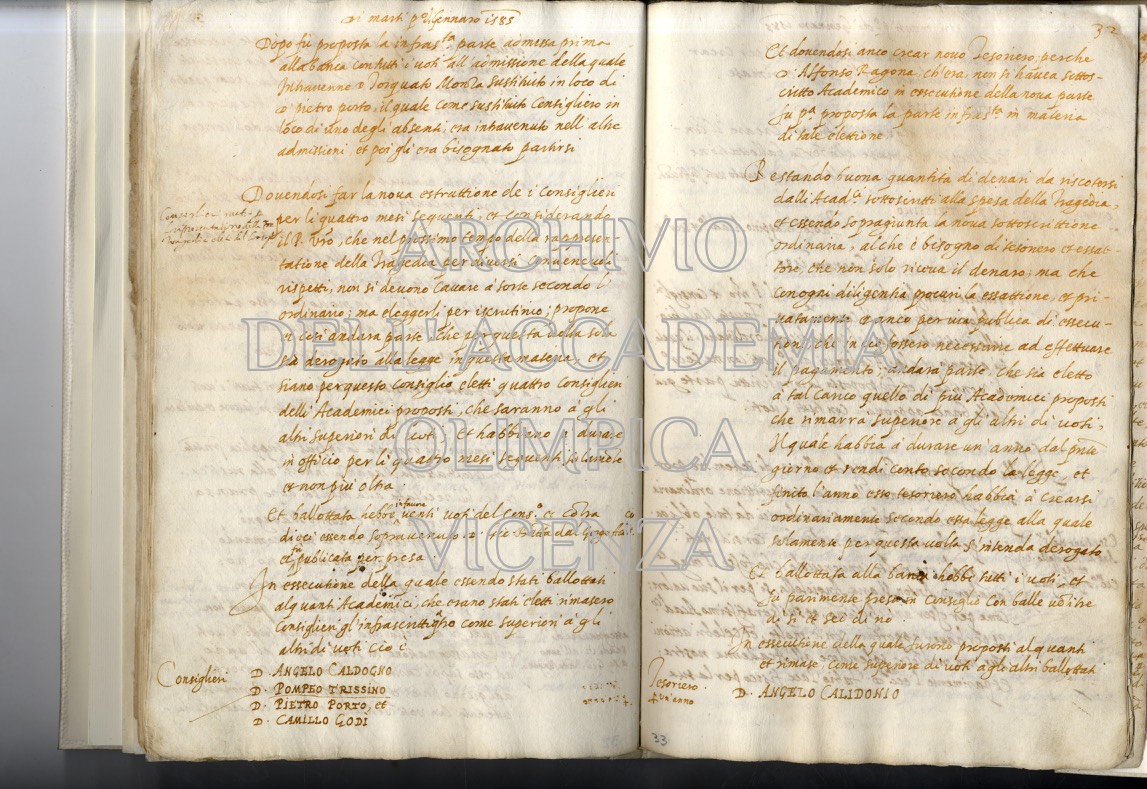 Di marti p.º di Gennaro 1585
Dopo fù proposta la infras.ta parte admissa prima
alla banca con tutti i uoti all'admissione della quale
Inhauenne D. Torquato Monza sustituto in loco di
D. Pietro porto, il quale come sustituto Consigliero in
loco di uno degli absenti, era inhauenuto nell'altre
admissioni, et poi gli era bisognato partirsi
Douendosi far la noua estrattione de i Consiglieri
per li quattro mesi sequenti, et considerando
il P. n̄ro, che nel prossimo tempo della rappresen-
tatione della Tragedia per diuersi conueneuoli
rispetti, non si deuono cauare à sorte secondo l'
ordinario; ma eleggerli per iscrutinio; propone
andara parte, che per questa uolta sola
sia derogato alla legge in questa materia, et
siano per questo Consiglio eletti quattro Consiglieri
delli Academici proposti, che saranno à gli
altri superiori di uoti, et habbiano à durare
in officio per li quattro mesi sequenti
et non più oltra.
Et ballottata hebbe in fauore uenti uoti del Cons.º et Cōtra
dieci essendo soprauenuto D.
et fu publicata per presa
In essecutione della quale essendo stati ballottati
alquanti Academici, che erano stati eletti rimasero
Consiglieri gl'infrascritti quattro come superiori à gli
altri di uoti cio è
Consiglieri
D. ANGELO CALDOGNO
D. POMPEO TRISSINO
D. PIETRO PORTO, et
D. CAMILLO GODI
32
Et douendosi anco crear nouo Tesoriero, perche
D. Alfonso Ragona, ch'era, non si hauea sottos-
critto Academico in essecutione della noua parte
fu p.a proposta la parte infras.ta in materia
di tale elettione
Restando buona quantita di denari da riscotersi
dalli Acad.ci sottoscritti alla spesa della Tragedia,
et essendo sopragiunta la noua sottoscrittione
ordinaria, al che è bisogno di tesoriero et essat-
tore, che non solo riceua il denaro; ma che
con ogni diligentia procuri la essattione, et pri-
uatamente et anco per uia publica di essecu-
tioni, che in ciò fossero necessarie ad effettuare
il pagamento; andarà parte, che sia eletto
à tal carico quello di più Academici proposti
che rimarra superiore a gli altri di uoti,
Il quale habbia à durare un'anno dal pn̄te
giorno et rendi conto secondo la legge, et
finito l'anno esso tesoriero habbia à crearsi
ordinariamente secondo essa legge alla quale
solamente per questa uolta s'intenda derogato
Et ballottata alla banca hebbe tutti i uoti, et
fu parimente presa in Consiglio con balle uentitre
di si et sei di no.
In essecutione della quale furono proposti alquanti
et rimase come superiore de uoti à gli altri ballottati
Tesoriero
p un'anno
D. ANGELO CALIDONIO
33
ARCHIVIO
DELL'ACCADEMIA
OLIMPICA
VICENZA